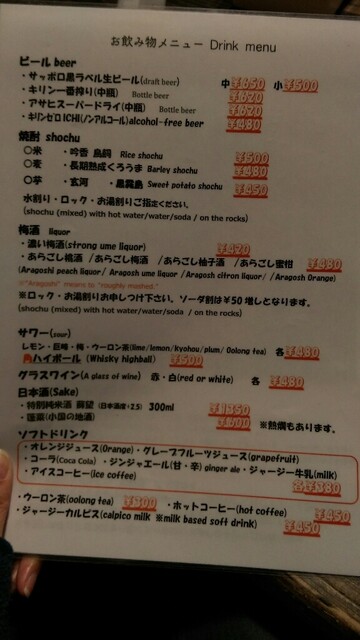 お飲み物メニュー Drink menu
ビール beer
・サッポロ黒ラベル生ビール(draft beer) 中¥650 小¥500
・キリン一番搾り(中瓶) Bottle beer ¥620
・アサヒスーパードライ(中瓶) Bottle beer ¥620
・キリンゼロICHI(ノンアルコール)alcohol-free beer ¥480
焼酎 shochu
○米 ・吟香 鳥飼 Rice shochu ¥500
○麦 ・長期熟成くろうま Barley shochu ¥480
○芋 ・玄河 ・黒霧島 Sweet potato shochu ¥450
水割り・ロック・お湯割りご指定ください。
(shochu (mixed) with hot water/water/soda / on the rocks)
梅酒 liquor
・濃い梅酒(strong ume liquor) ¥420
・あらごし桃酒 /あらごし梅酒 /あらごし柚子酒 /あらごし蜜柑 ¥480
(Aragoshi peach liquor/ Aragoshi ume liquor /Aragoshi citron liquor/ /Aragoshi Orange)
※"Aragoshi" means to "roughly mashed."
※ロック・お湯割りお申しつけ下さい。ソーダ割は¥50増しとなります。
(shochu (mixed) with hot water/water/soda / on the rocks)
サワー(sour)
レモン・巨峰・梅・ウーロン茶(lime/lemon/Kyohou/plum/ Oolong tea) 各¥480
ハイボール (Whisky highball) ¥500
グラスワイン(A glass of wine) 赤・白(red or white) 各 ¥480
日本酒(Sake)
・特別純米酒 (日本酒度+2.5) 300ml ¥1350
・蓬莱(小国の地酒) ¥600 ※熱燗もあります。
ソフトドリンク
・オレンジジュース(Orange)・グレープフルーツジュース(grapefruit)
・コーラ(Coca Cola) ・ジンジャエール(甘・辛) ginger ale ・ジャージー牛乳(milk)
・アイスコーヒー(ice coffee) 各¥380
・ウーロン茶(oolong tea) ¥300 ・ホットコーヒー(hot coffee) ¥450
・ジャージーカルピス(calpico milk ※milk based soft drink) ¥450